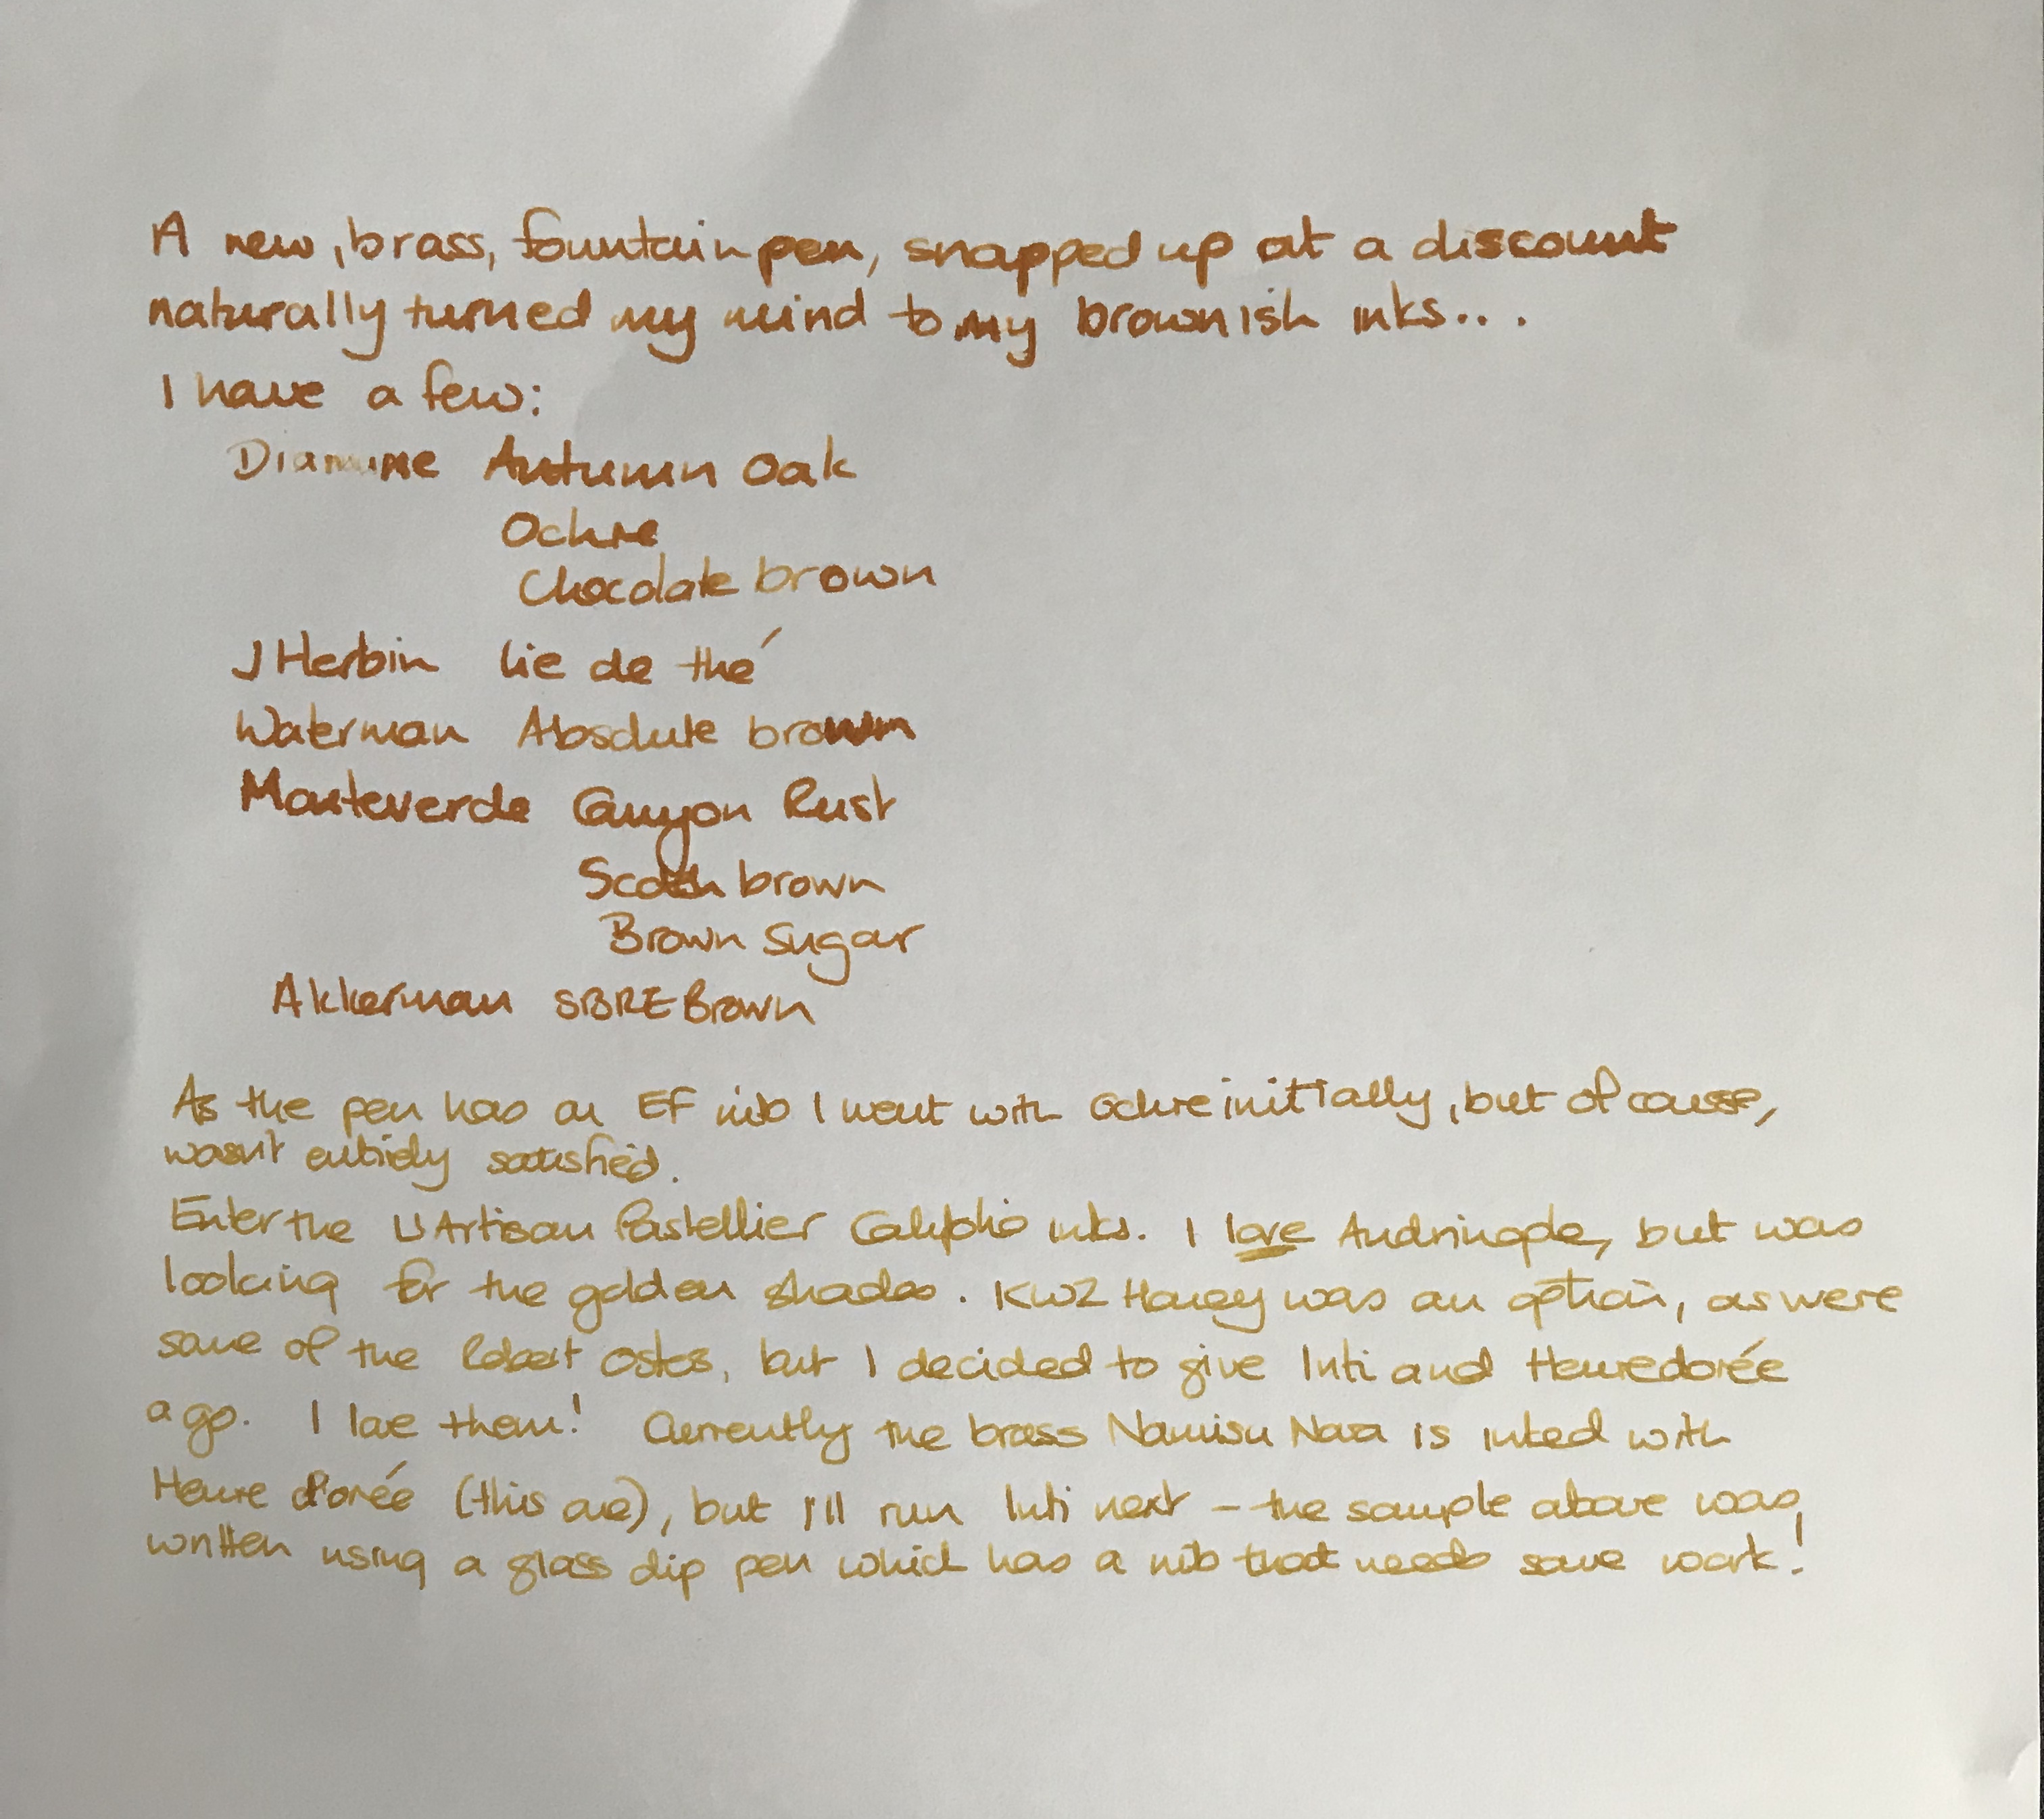 A new, brass, fountain pen, snapped up at a discount
naturally turned my mind to my brownish inks...
I have a few:
Diamine Autumn Oak
Ochre
Chocolate brown
J Herbin lie de thé
Waterman Absolute brown
Monteverde Canyon Rust
Scotch brown
Brown Sugar
Akkerman SBRE Brown
As the pen has an EF nib I went with Ochre initially, but of course,
wasn't entirely satisfied.
Enter the L'Artisan Pastellier Callifolio inks. I love Andrinople, but was
looking for the golden shades. KWZ Honey was an option, as were
some of the Robert Osters, but I decided to give Inti and Heure dorée
a go. I love them! Currently the brass Namisu Naa is inked with
Heure dorée (this one), but I'll run Inti next – the sample above was,
written using a glass dip pen which has a nib that needs some work!